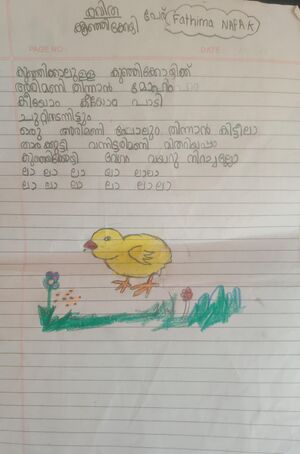 കവിത
കുഞ്ഞിക്കോഴി
പേര് Fathima NAFA K
PAGE NO:
DATE:
കുഞ്ഞിക്കാലുള്ള കുഞ്ഞിക്കോഴിക്ക്
അരിമണി തിന്നാൻ മോഹം
കീയോം കീയോം പാടി
ചുറ്റിനടന്നിട്ടും
ഒരു അരിമണി പോലും തിന്നാൻ കിട്ടീലാ
വന്നിട്ടരിമണി വിതറിയപ്പോ
കുഞ്ഞിക്കോഴി വേഗം വയറു നിറച്ചല്ലോ
ലാ ലാ ലാ ലാ ലാലാ
ലാ ലാ ലാ ലാ ലാ ലാ